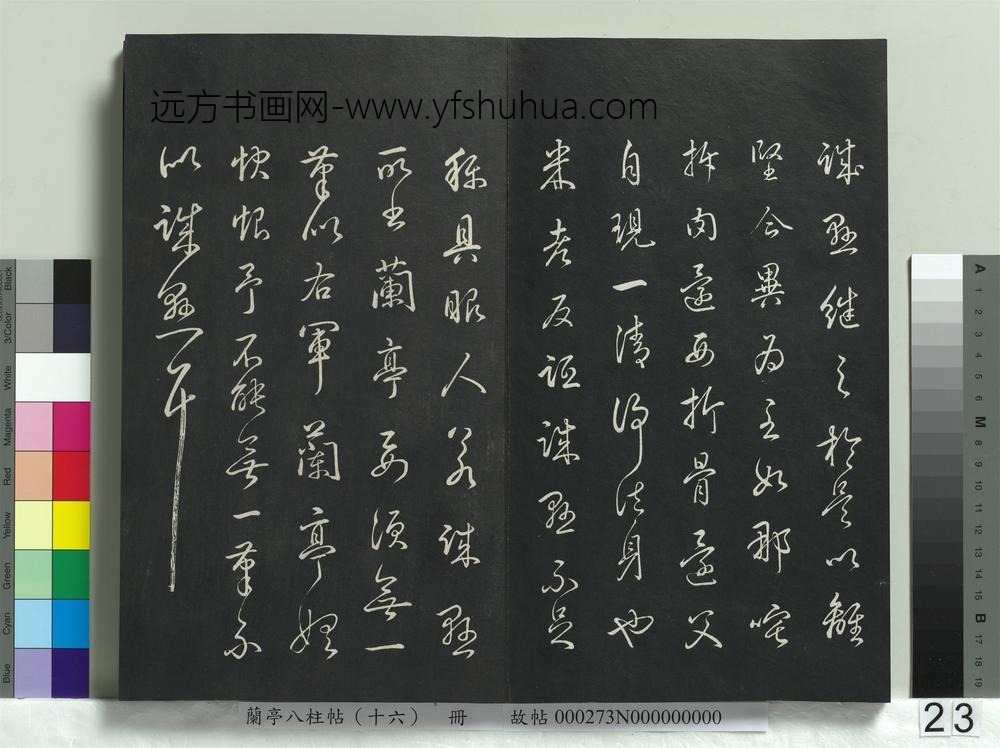 远方书画网-www.yfshuhua.com
誠懸継之於是以離
堅合異為主如那吒
拆肉還母折骨還父
自現一清淨法身也
米老反詆誠懸不足
稱具眼人若誠懸
所書蘭亭要須無一
筆似右軍蘭亭始
快恨予不能無一筆不
似誠懸耳
蘭亭八柱帖（十六） 冊 故帖 000273N000000000
23
Black
3/Color
White
Magenta
Red
Yellow
Green
Cyan
Blue
A
1
2
3
4
5
6
M
8
9
10
11
12
13
14
15
B
17
18
19